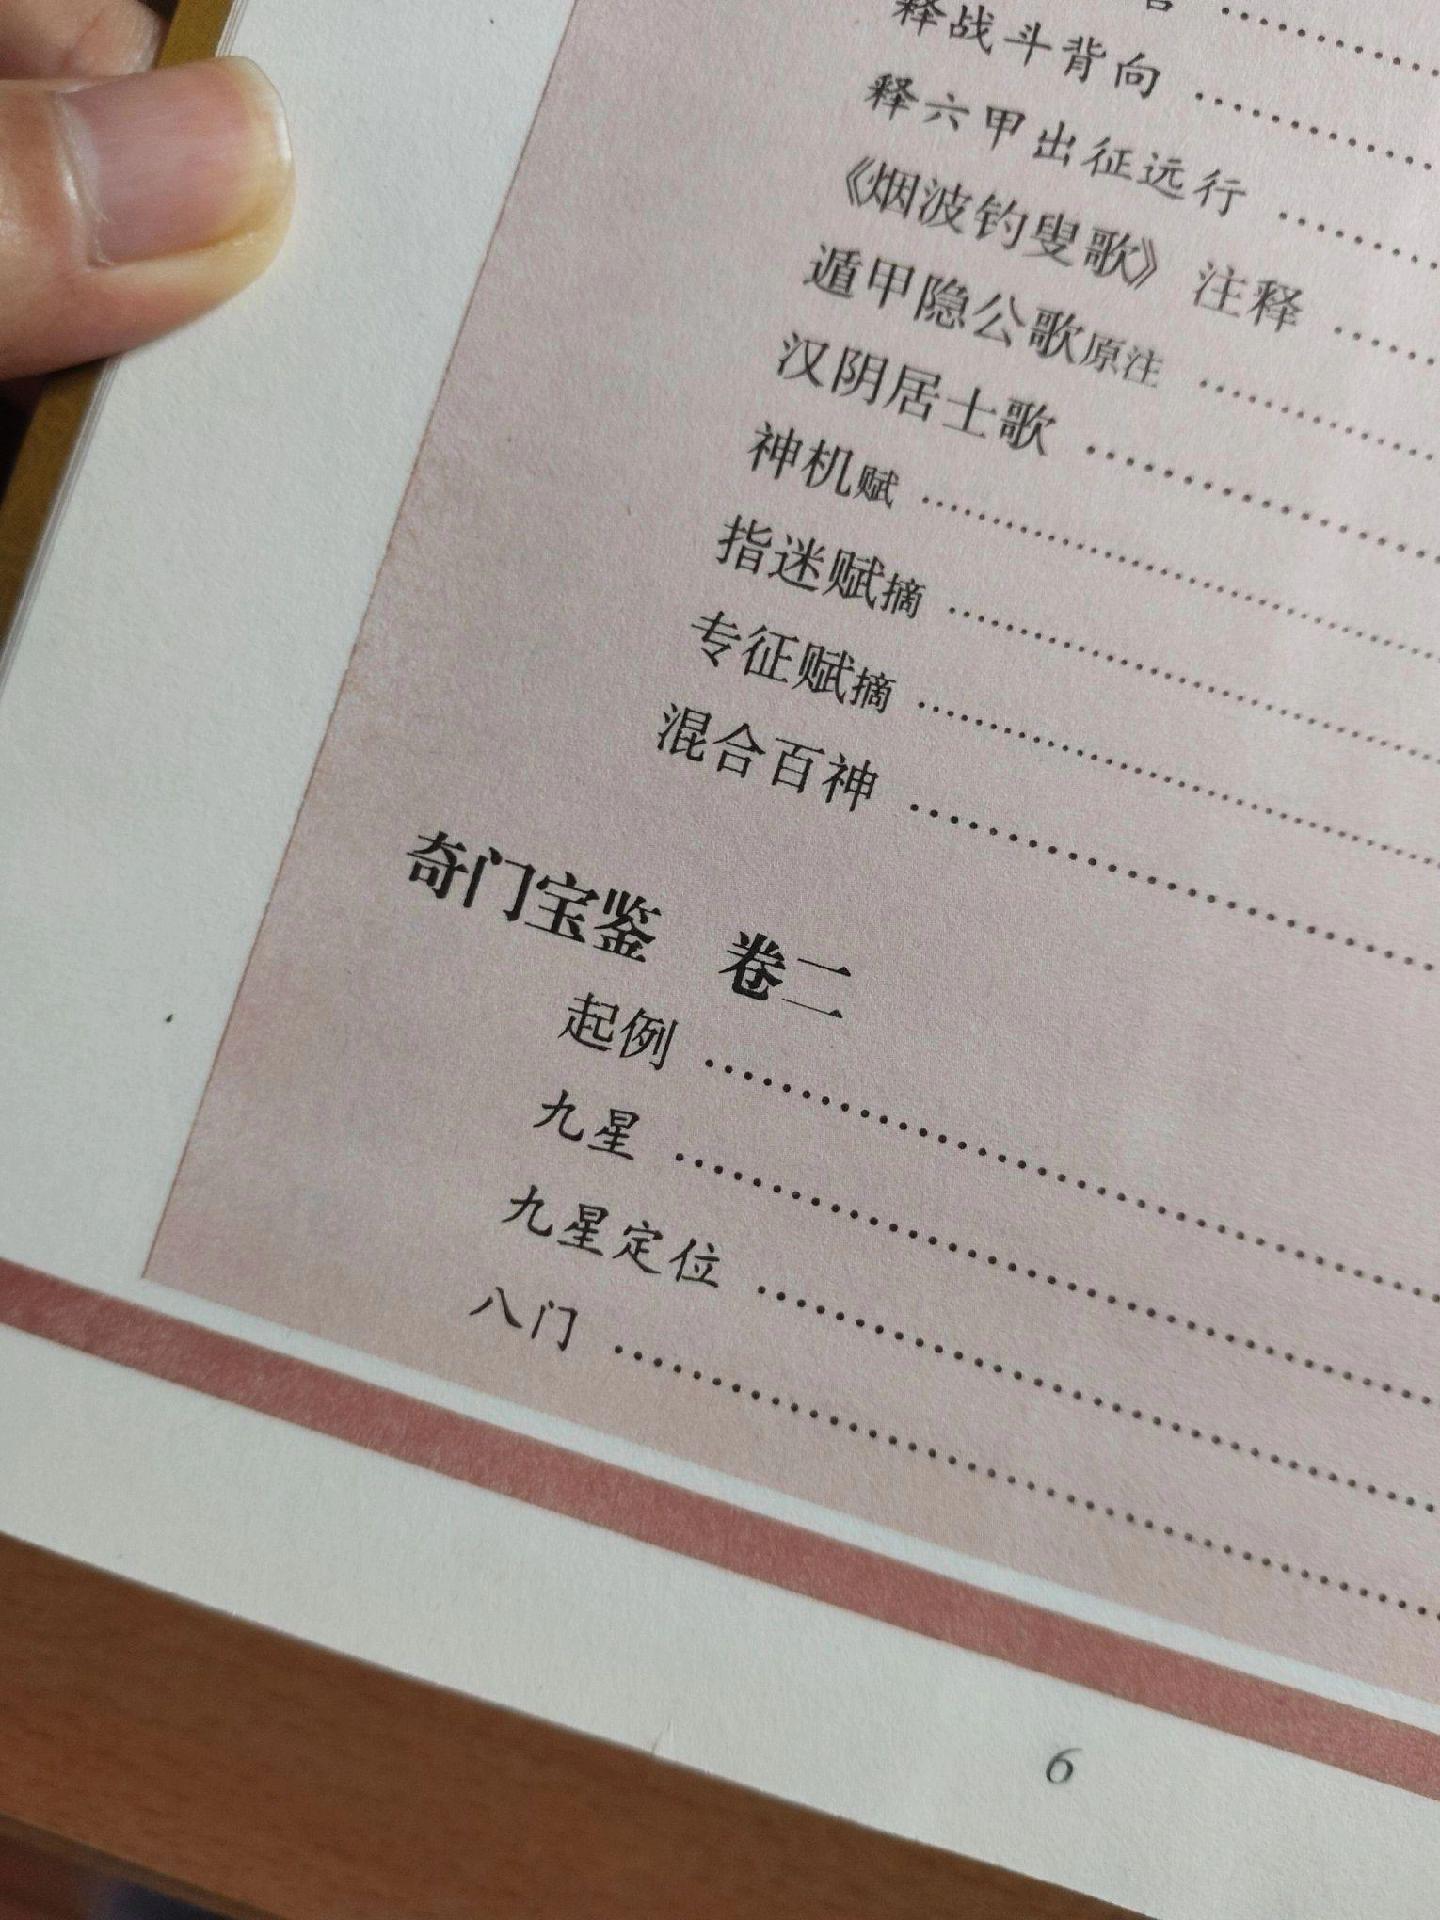 释战斗背向
释六甲出征远行
《烟波钓叟歌》注释
遁甲隐公歌原注
汉阴居士歌
神机赋
指迷赋摘
专征赋摘
混合百神
奇门宝鉴 卷二
起例
九星
九星定位
八门
6